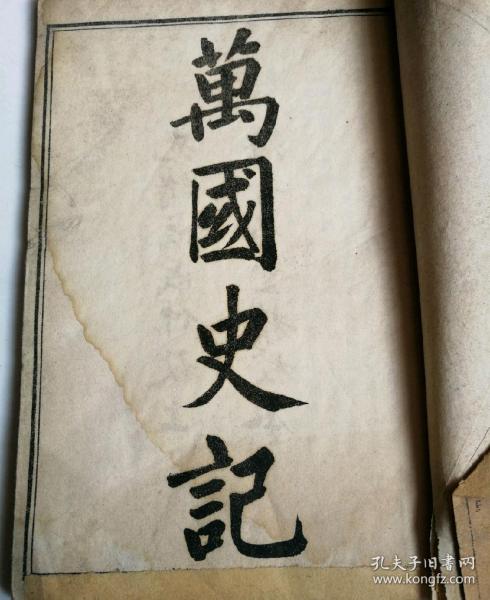 萬國史記
孔夫子旧书网
www.kongfz.com